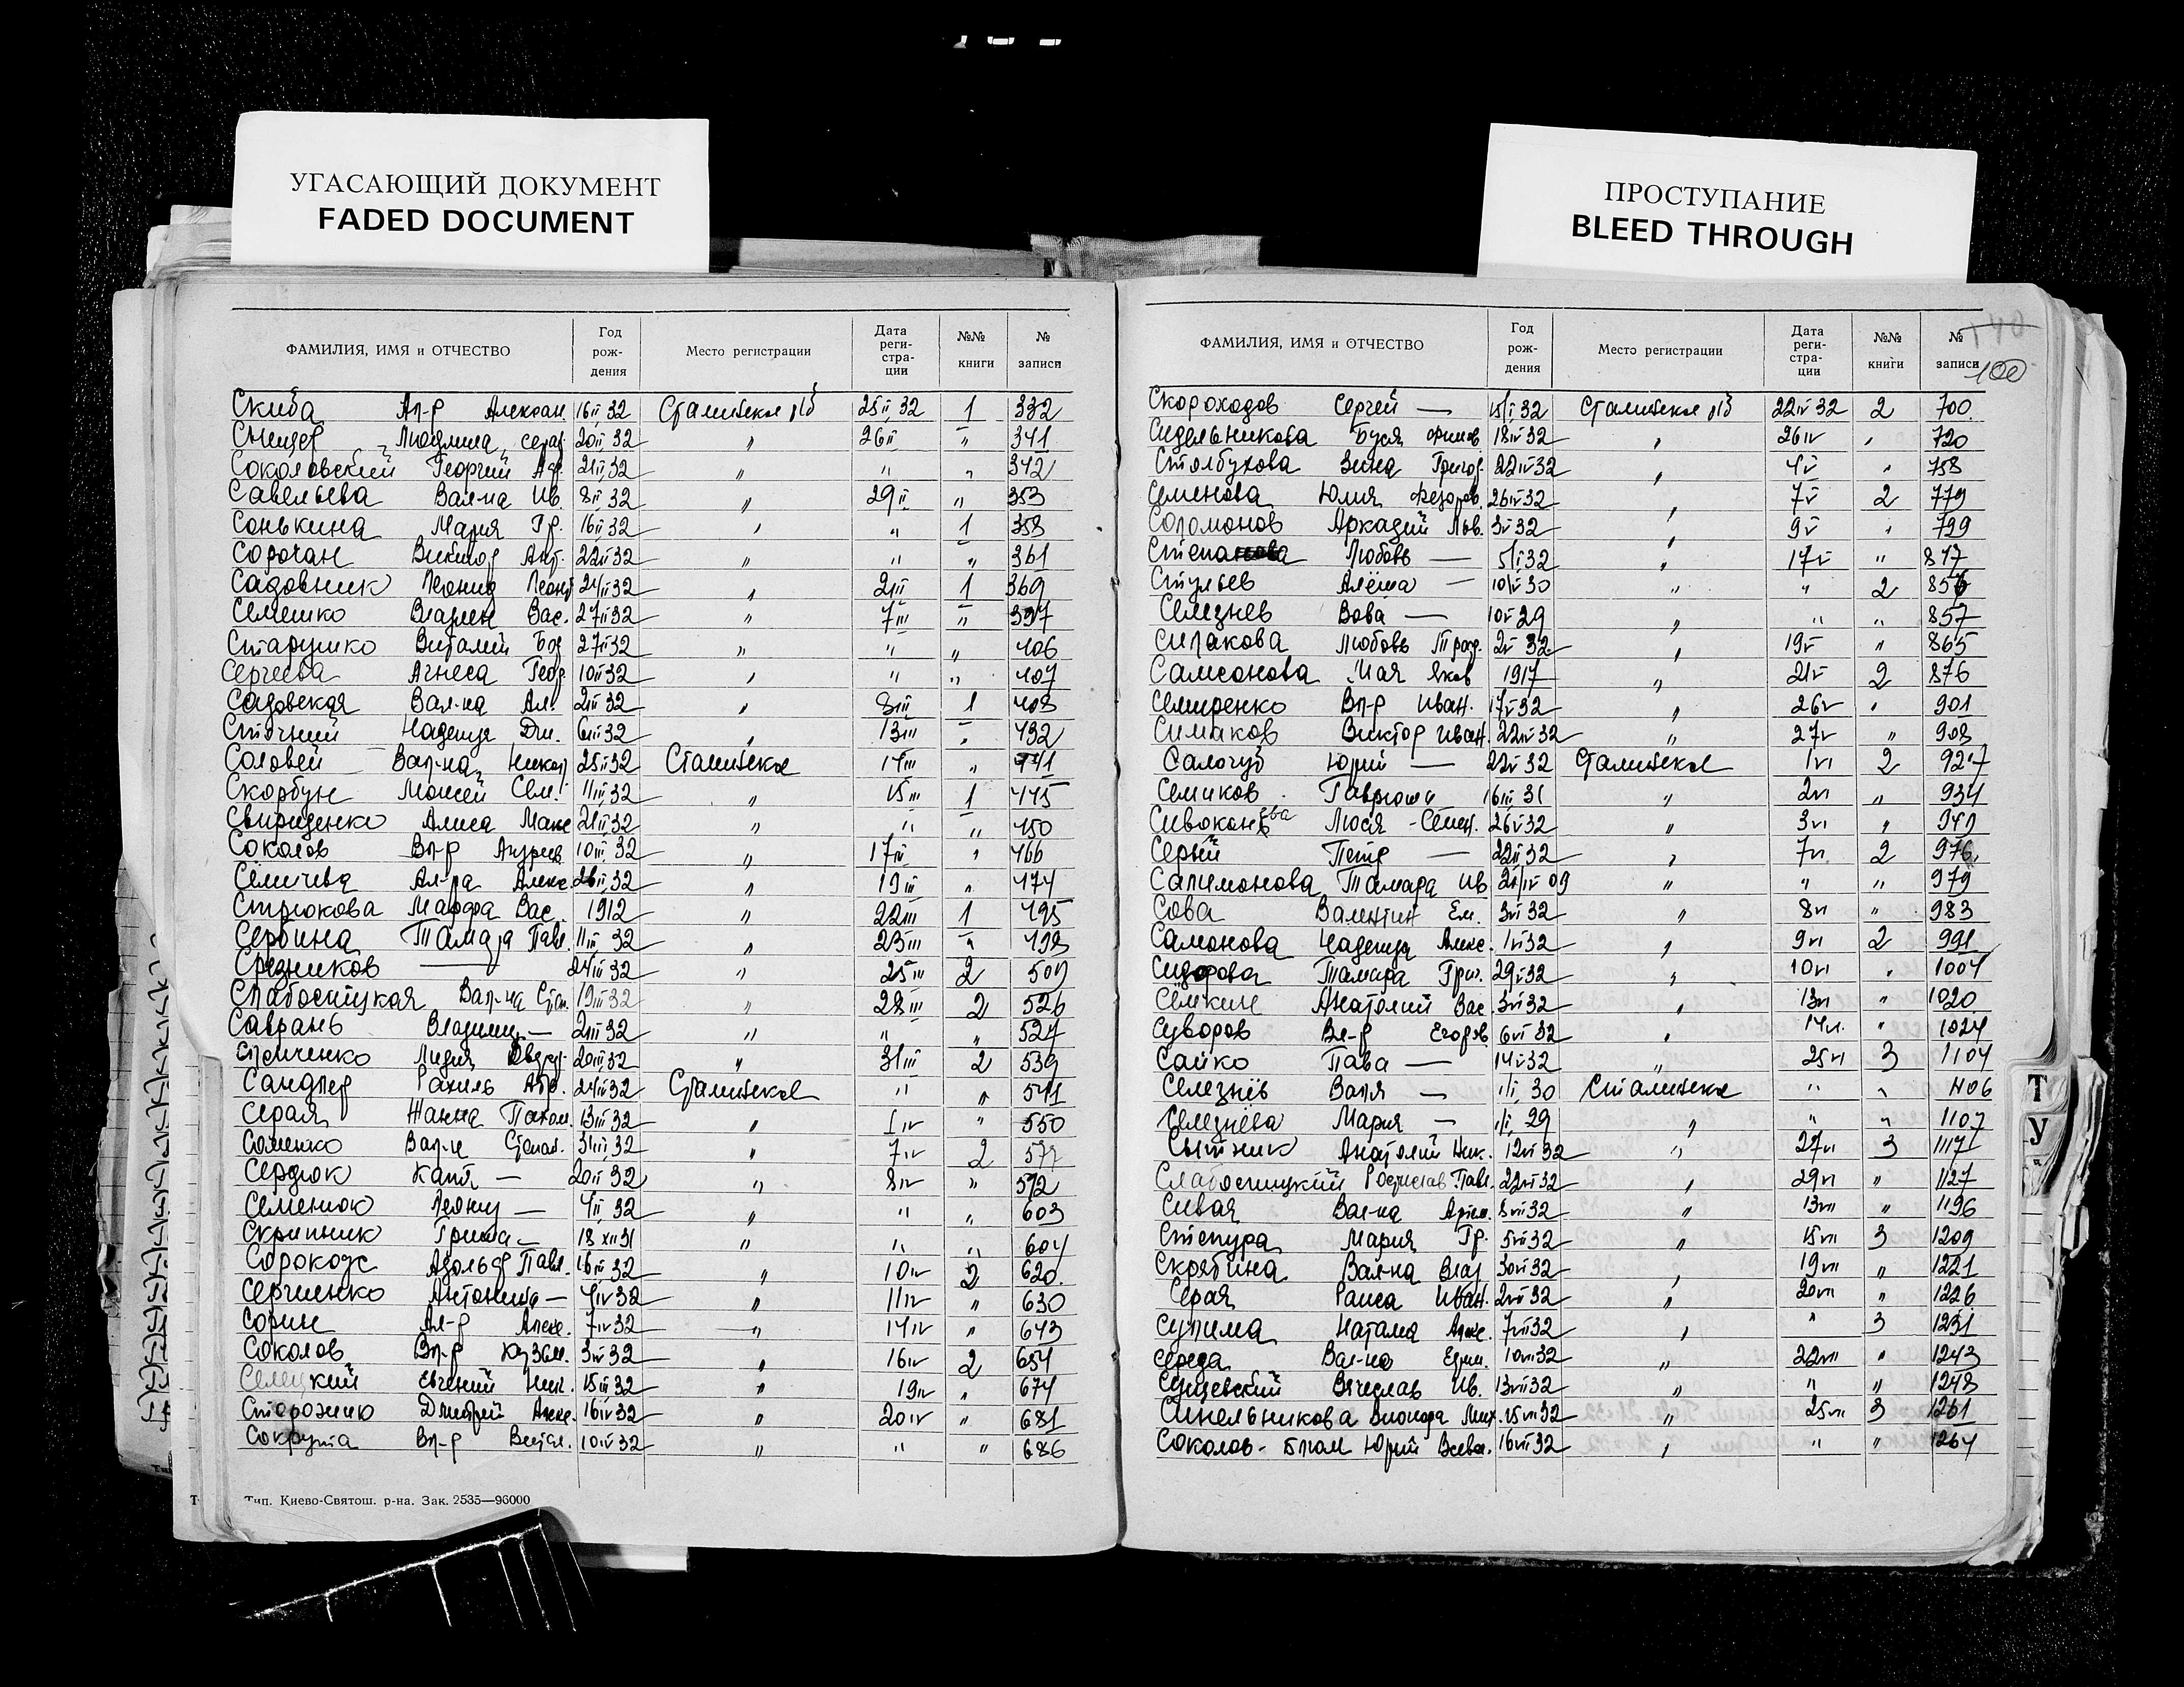 УГАСАЮЩИЙ ДОКУМЕНТ
FADED DOCUMENT
ПРОСТУПАНИЕ
BLEED THROUGH
ФАМИЛИЯ, ИМЯ и ОТЧЕСТВО Год рождения Место регистрации Дата регистрации №№ книги № записи
Скиба Ал-р Алексан. 16 II 32 Сталинское р/б 25 II 32 1 332
Людмила 20 II 32 " 26 II " 341
Соколовский Георгий 21 II 32 " " " 342
Савельева Вал-на Ив. 8 II 32 " 29 II " 353
Сонькина Мария Гр. 16 II 32 " " 1 358
Сорочан Виктор Ант. 22 II 32 " " " 361
Садовник Леонид Леонид 24 II 32 " 2 III 1 369
Семешко Вас. 27 II 32 " 7 III " 397
Старушко Виталий 27 II 32 " " " 406
Сергеева Агнеса Геор. 10 II 32 " " " 407
Садовская Вал-на Ал. 2 III 32 " 8 III 1 408
Надежда Дм. 6 III 32 " 13 III " 432
Соловей Вал-на Никол. 25 II 32 Сталинское 14 III " 441
Скорбун Моисей Сем. 11 III 32 " 15 III 1 445
Свириденко Алиса Макс 21 II 32 " " " 450
Соколов Вл-р Андреев 10 III 32 " 17 III " 466
Семичева Ал-ра Алекс. 26 II 32 " 19 III " 474
Стрюкова Марфа Вас. 1912 " 22 III 1 495
Сербина Тамара Павл. 11 III 32 " 23 III " 498
Срезников — 24 III 32 " 25 III 2 509
Слабоспицкая Вал-на Стан. 19 III 32 " 28 III 2 526
Саврань Владимир — 2 III 32 " " " 527
Лидия 20 III 32 " 31 III 2 539
Сандлер Рахиль Абр. 24 III 32 Сталинское " " 541
Серая Жанна Пахом. 13 III 32 " 1 IV " 550
Соменко Вал-н Степан. 31 III 32 " 7 IV 2 577
Сердюк Катя — 20 III 32 " 8 IV " 592
Семенюк Леонид — 4 III 32 " " " 603
Скрипник Гриша — 18 XII 31 " " " 604
Сорокодс Адольф Павл. 16 III 32 " 10 IV 2 620.
Сергиенко Антонина — 4 IV 32 " 11 IV " 630
Сорин Ал-р Алекс. 7 IV 32 " 14 IV " 643
Соколов Вл-р Кузьм. 3 IV 32 " 16 IV 2 654
Селецкий Евгений Ник. 15 III 32 " 19 IV " 674
Сторожко Дмитрий Алекс. 16 IV 32 " 20 IV " 681
Сокрута Вл-р Витал. 10 IV 32 " " " 686
Тип. Киево-Святош. р-на. Зак. 2535—96000
ФАМИЛИЯ, ИМЯ и ОТЧЕСТВО Год рождения Место регистрации Дата регистрации №№ книги № записи
100
Скороходов Сергей — 15/I 32 Сталинское р/б 22 IV 32 2 700.
Сидельникова Буся Филип. 18 IV 32 " 26 IV " 720
Столбухова Зина Григор. 22 IV 32 " 4 V " 758
Семенова Юлия Федоров. 26 IV 32 " 7 V 2 779
Соломонов Аркадий Льв. 3 V 32 " 9 V " 799
Любовь — 5/I 32 " 17 V " 847
Стульев Алёша — 10/V 30 " " 2 856
Селезнев Вова — 10 V 29 " " " 857
Силакова Любовь 2 V 32 " 19 V " 865
Самсонова Мая Яков 1917 " 21 V 2 876
Семиренко Вл-р Иван. 17 V 32 " 26 V " 901
Симаков Виктор Иван. 22 IV 32 " 27 V " 908
Салогуб Юрий — 22 V 32 Сталинское 1 VI 2 927
Семиков Гаврюша 16 III 31 " 2 VI " 934
Люся - Семен. 26 V 32 " 3 VI " 949
Петр — 22 II 32 " 7 VI 2 976
Салимонова Тамара Ив 21/IV 09 " " " 979
Сова Валентин Ем. 3 VI 32 " 8 VI " 983
Самонова Надежда Алекс. 1 VI 32 " 9 VI 2 991
Сидорова Тамара Григ. 29 V 32 " 10 VI " 1004
Сёмкин Анатолий Вас. 3 VI 32 " 13 VI " 1020
Суворов Вл-р Егоров. 6 VI 32 " 14 VI " 1024
Сайко Пава — 14 V 32 " 25 VI 3 1104
Селезнів Валя — 1/I 30 Сталинское " " 1106
Селезнёва Мария — 1/I 29 " " " 1107
Сытник Анатолий Ник. 12 VI 32 " 27 VI 3 1117
Слабоспицкий Ростислав Павл. 22 VI 32 " 29 VI " 1127
Сивая Вал-на Артем. 8 VII 32 " 13 VII " 1196
Степура Мария Гр. 5 VII 32 " 15 VII 3 1209
Скрябина Вал-на Влад 30 VI 32 " 19 VII " 1221
Серая Раиса Иван. 2 VII 32 " 20 VII " 1226
Супима Натала Алекс. 7 VII 32 " " 3 1231
Середа Вал-на 10 VII 32 " 22 VII " 1243
Вячеслав Ив. 13 VII 32 " " " 1248
Синельникова Мих. 15 VII 32 " 25 VII 3 1261
Соколов - Юрий Всевол. 16 VII 32 " " " 1264
Т
У